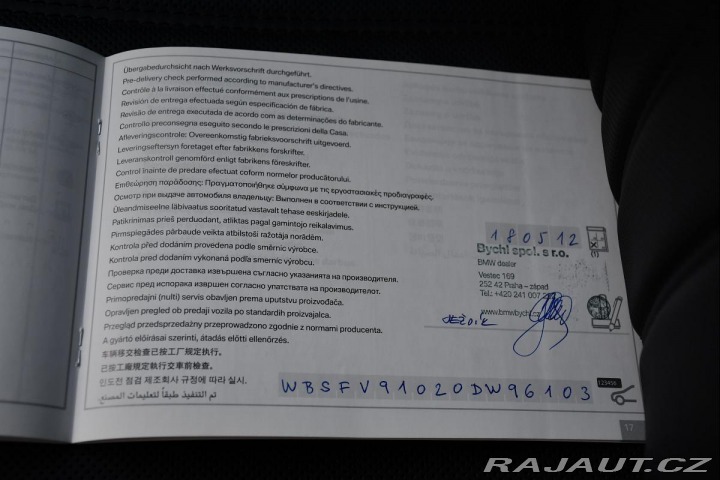 Übergabedurchsicht nach Werksvorschrift durchgeführt.
Pre-delivery check performed according to manufacturer's directives.
Contrôle à la livraison effectué conformément aux prescriptions de l'usine.
Revisión de entrega efectuada según especificación de fábrica.
Revisão de entrega executada de acordo com as determinações do fabricante.
Controllo preconsegna eseguito secondo le prescrizioni della Casa.
Afleveringscontrole: Overeenkomstig fabrieksvoorschrift uitgevoerd.
Leveringseftersyn foretaget efter fabrikkens forskrifter.
Leveranskontroll genomförd enligt fabrikens föreskrifter.
Control înainte de predare efectuat coform normelor producătorului.
Επιθεώρηση παράδοσης: Πραγματοποιήθηκε σύμφωνα με τις εργοστασιακές προδιαγραφές.
Осмотр при выдаче автомобиля владельцу: Выполнен в соответствии с инструкцией.
Üleandmiseelne läbivaatus sooritatud vastavalt tehase eeskirjadele.
Patikrinimas prieš perduodant, atliktas pagal gamintojo reikalavimus.
Pirmspiegādes pārbaude veikta atbilstoši ražotāja norādēm.
Kontrola před dodáním provedena podle směrnic výrobce.
Kontrola pred dodaním vykonaná podľa smerníc výrobcu.
Проверка преди доставка извършена съгласно указанията на производителя.
Сервис пред испорака извршен согласно упатствата на производителот.
Primopredajni (nulti) servis obavljen prema uputstvu proizvođača.
Opravljen pregled ob predaji vozila po standardih proizvajalca.
Przegląd przedsprzedażny przeprowadzono zgodnie z normami producenta.
A gyártó előírásai szerinti, átadás előtti ellenőrzés.
车辆移交检查已按工厂规定执行。
已按工廠規定執行交車前檢查。
인도전 점검 제조회사 규정에 따라 실시.
تم التنفيذ طبقاً لتعليمات المصنع
180512
Bychl spol. s r.o.
BMW dealer
Vestec 169
252 42 Praha – západ
Tel.: +420 241 007
www.bmwbychl.cz
(1)
WBSFV91020DW96103
123456
17
RAJAUT.CZ